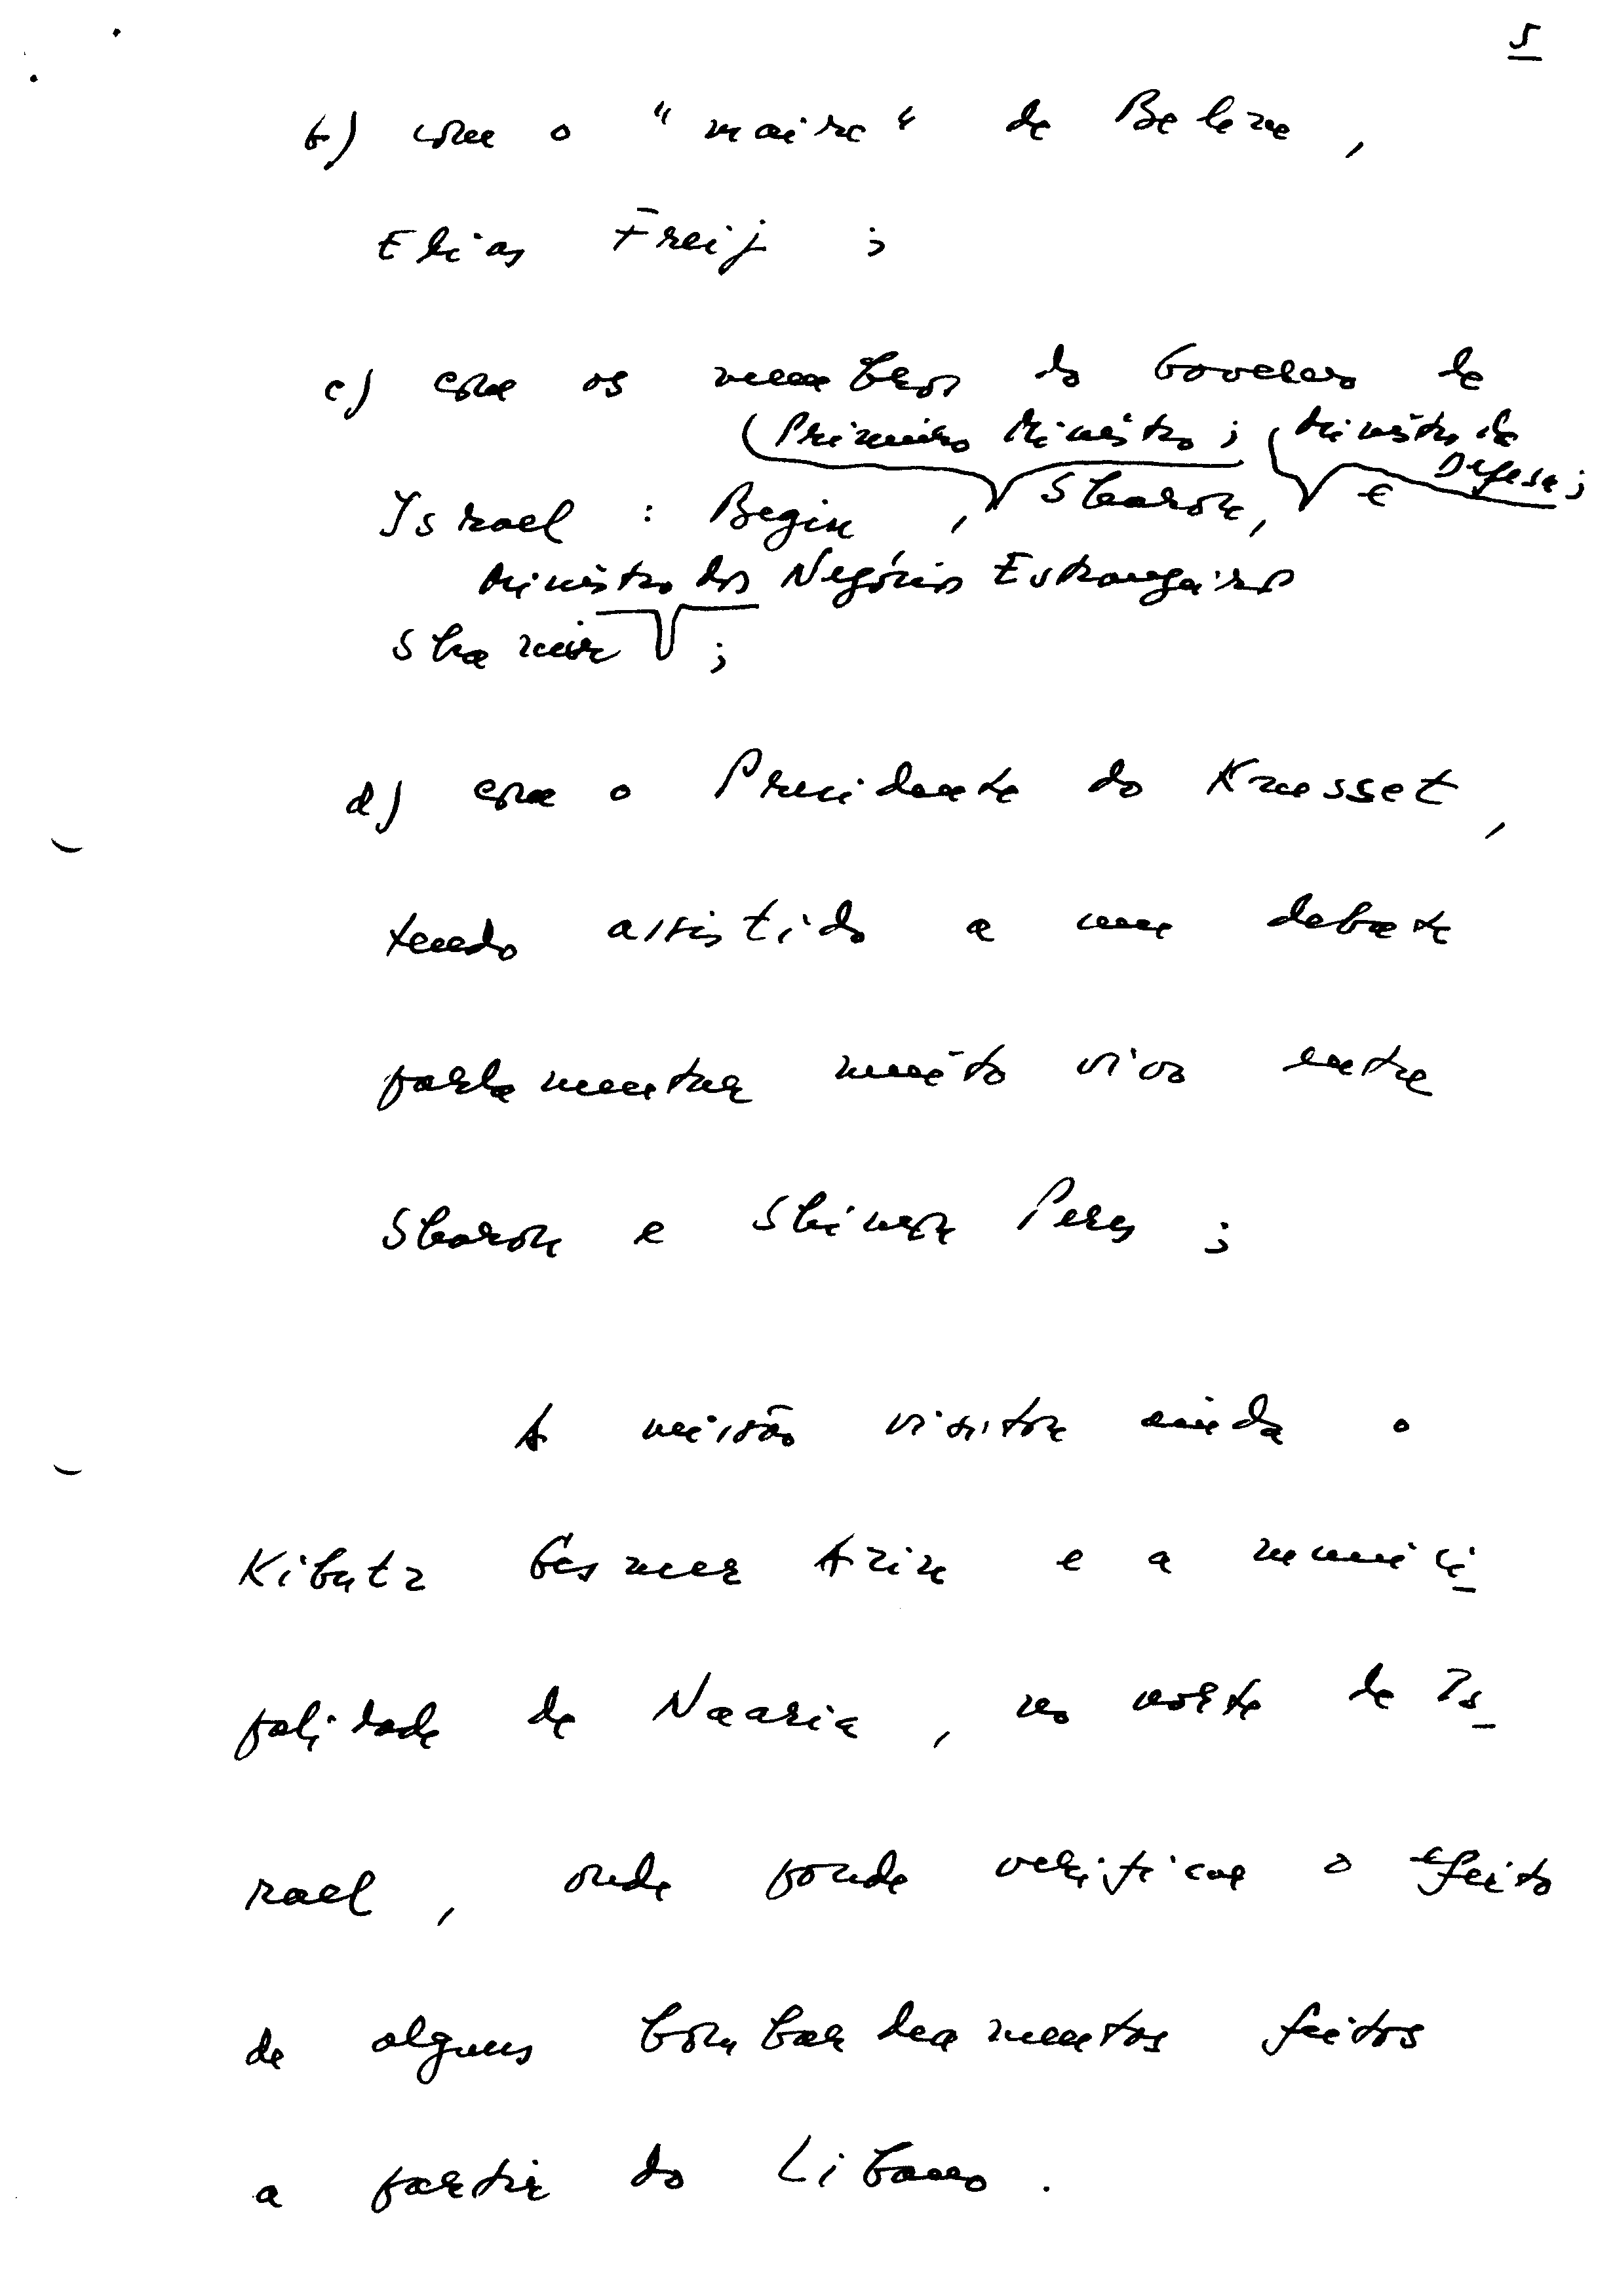 5
b) com o "maire" de Belem,
Elias Freij;
c) com os membros do Governo de
Primeiro Ministro; Ministro da
Defesa;
Israel: Begin, Sharon, e
Ministro dos Negócios Estrangeiros
Shamir;
d) com o Presidente do Knesset,
tendo assistido a um debate
parlamentar muito vivo entre
Sharon e Shimon Peres;
A missão visitou ainda o
Kibutz Gesmer Aziv e a munici
palidade de Naaria, no norte de Is
rael, onde poude verificar o efeito
de alguns bombardeamentos feitos
a partir do Libano.